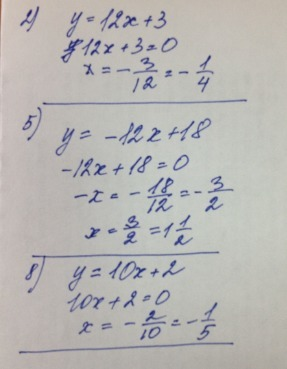 2) y = 12x+3
12x+3=0
x = -3/12 = -1/4
5) y = -12x+18
-12x+18=0
-x = -18/12 = -3/2
x = 3/2 = 1 1/2
8) y = 10x+2
10x+2=0
x = -2/10 = -1/5